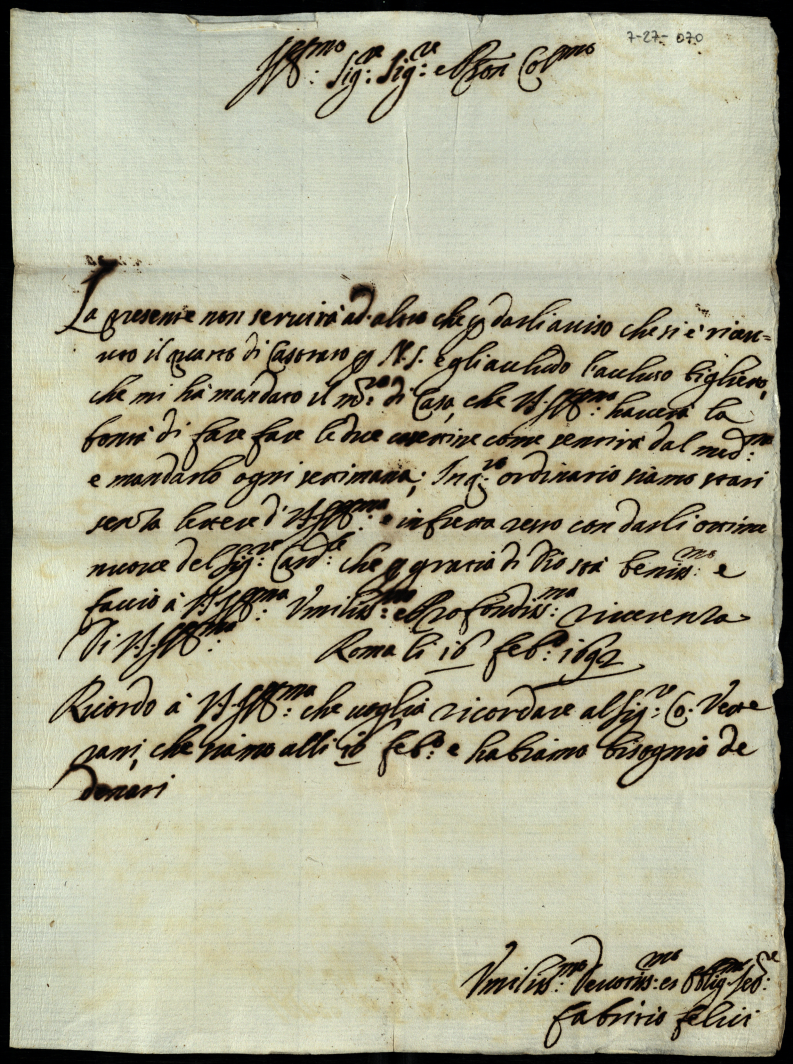 7-27-070
Ill:mo Sig:re Sig:re e Pron Col:mo
La presente non servirà ad altro che p darli aviso che si è riceu=
uto il quarto di Castrato p N.S. e gli accludo l'accluso biglietto,
che mi hà mandato il m:ro di Casa, che V.S.Ill:ma haverà la
bontà di fare fare le due come sentirà dal med:mo
e mandarlo ogni settimana; In q:to ordinario siamo stati
senza lettere di V.S.Ill:ma e in fretta resto con darli ottime
nuove del Sig:re Card:le che p gratia di Dio stà beniss:mo e
faccio à V.S.Ill:ma Umiliss:ma e Profondiss:ma riverenza
Di V.S.Ill:ma Roma li 16 feb:o 1692
Ricordo à V.S.Ill:ma che voglia ricordare al Sig:re Co:
che siamo alli 16 feb:o e habiamo bisognio de
denari
Umiliss:mo Devotiss:mo et Oblig:mo Ser:re
Fabritio Felici